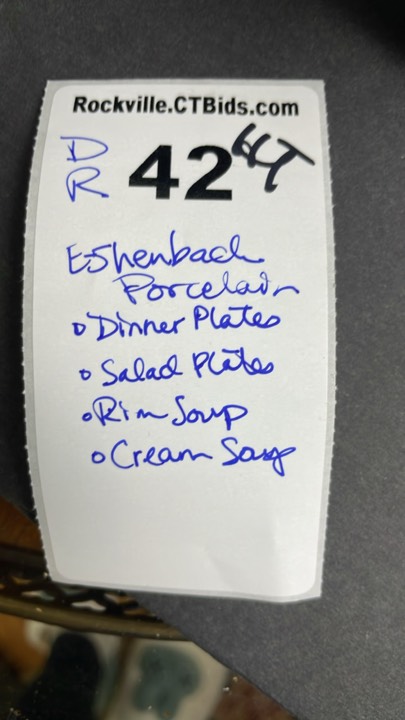 Rockville.CTBids.com
D
R 42
Eshenbach
Porcelain
Dinner Plates
Salad Plates
Rim Soup
Cream Soup